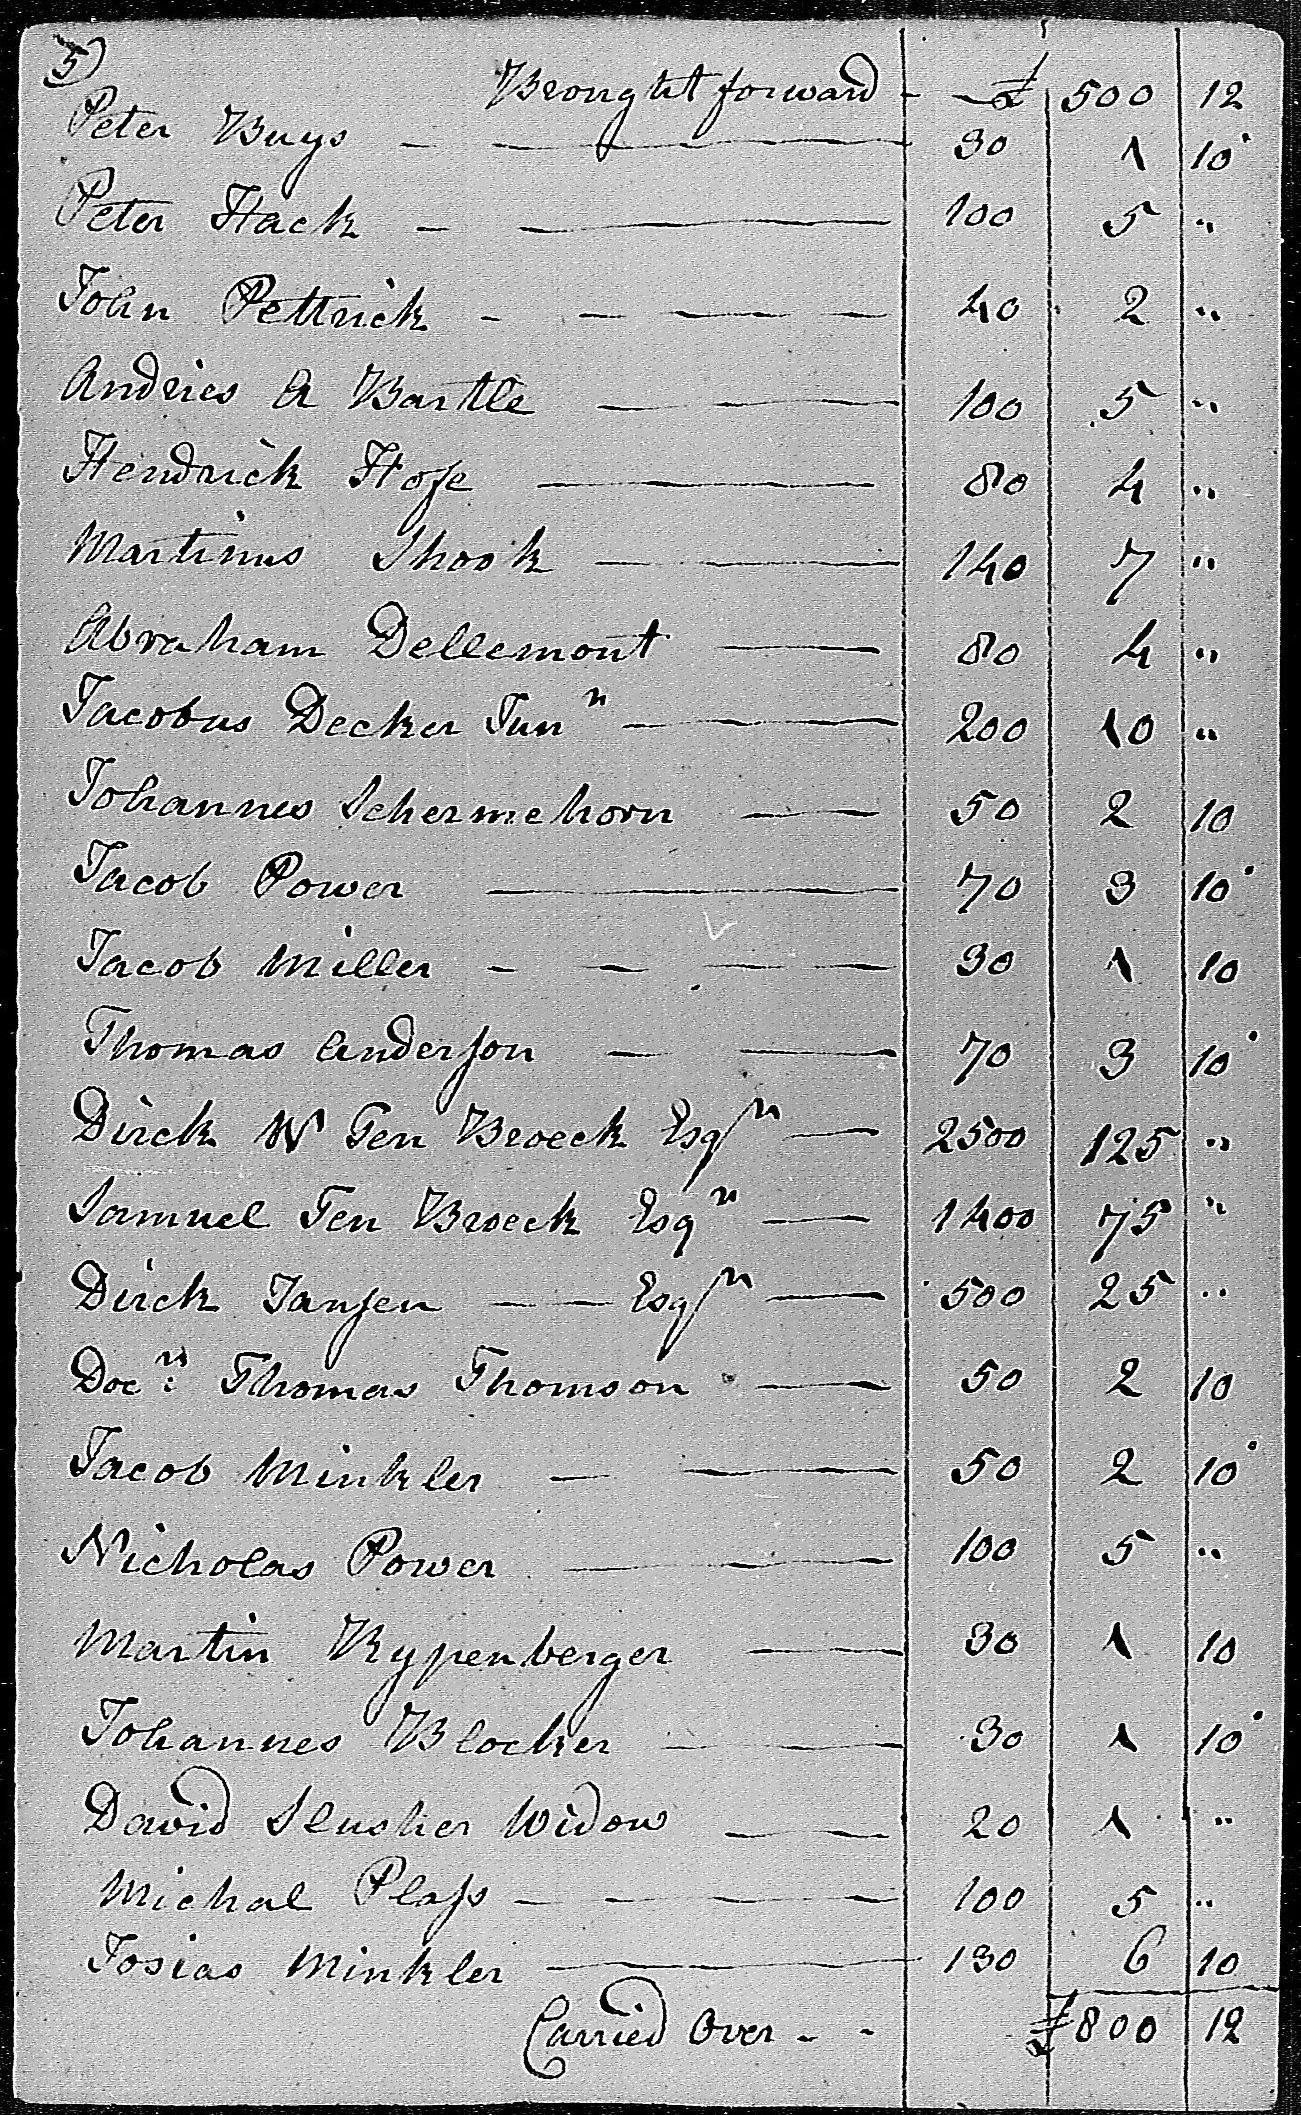 5)
Brought forward - - £ 500 12
Peter Buys 30 1 10
Peter Hack 100 5 "
John Pettrick 40 2 "
Andries A Bartle 100 5 "
Hendrick Hofe 80 4 "
Martinus Shook 140 7 "
Abraham Dellemont 80 4 "
Jacobus Decker Junr 200 10 "
Johannes Schermehorn 50 2 10
Jacob Power 70 3 10
Jacob Miller 30 1 10
Thomas Anderson 70 3 10
Dirck W Ten Broeck Esqr 2500 125 "
Samuel Ten Broeck Esqr 1400 75 "
Dirck Jansen Esqr 500 25 "
Docr: Thomas Thomson 50 2 10
Jacob Minkler 50 2 10
Nicholas Power 100 5 "
Martin Rypenberger 30 1 10
Johannes Blocker 30 1 10
David Slusher Widow 20 1 "
Michal Plass 100 5 "
Josias Minkler 130 6 10
Carried Over - - £ 800 12